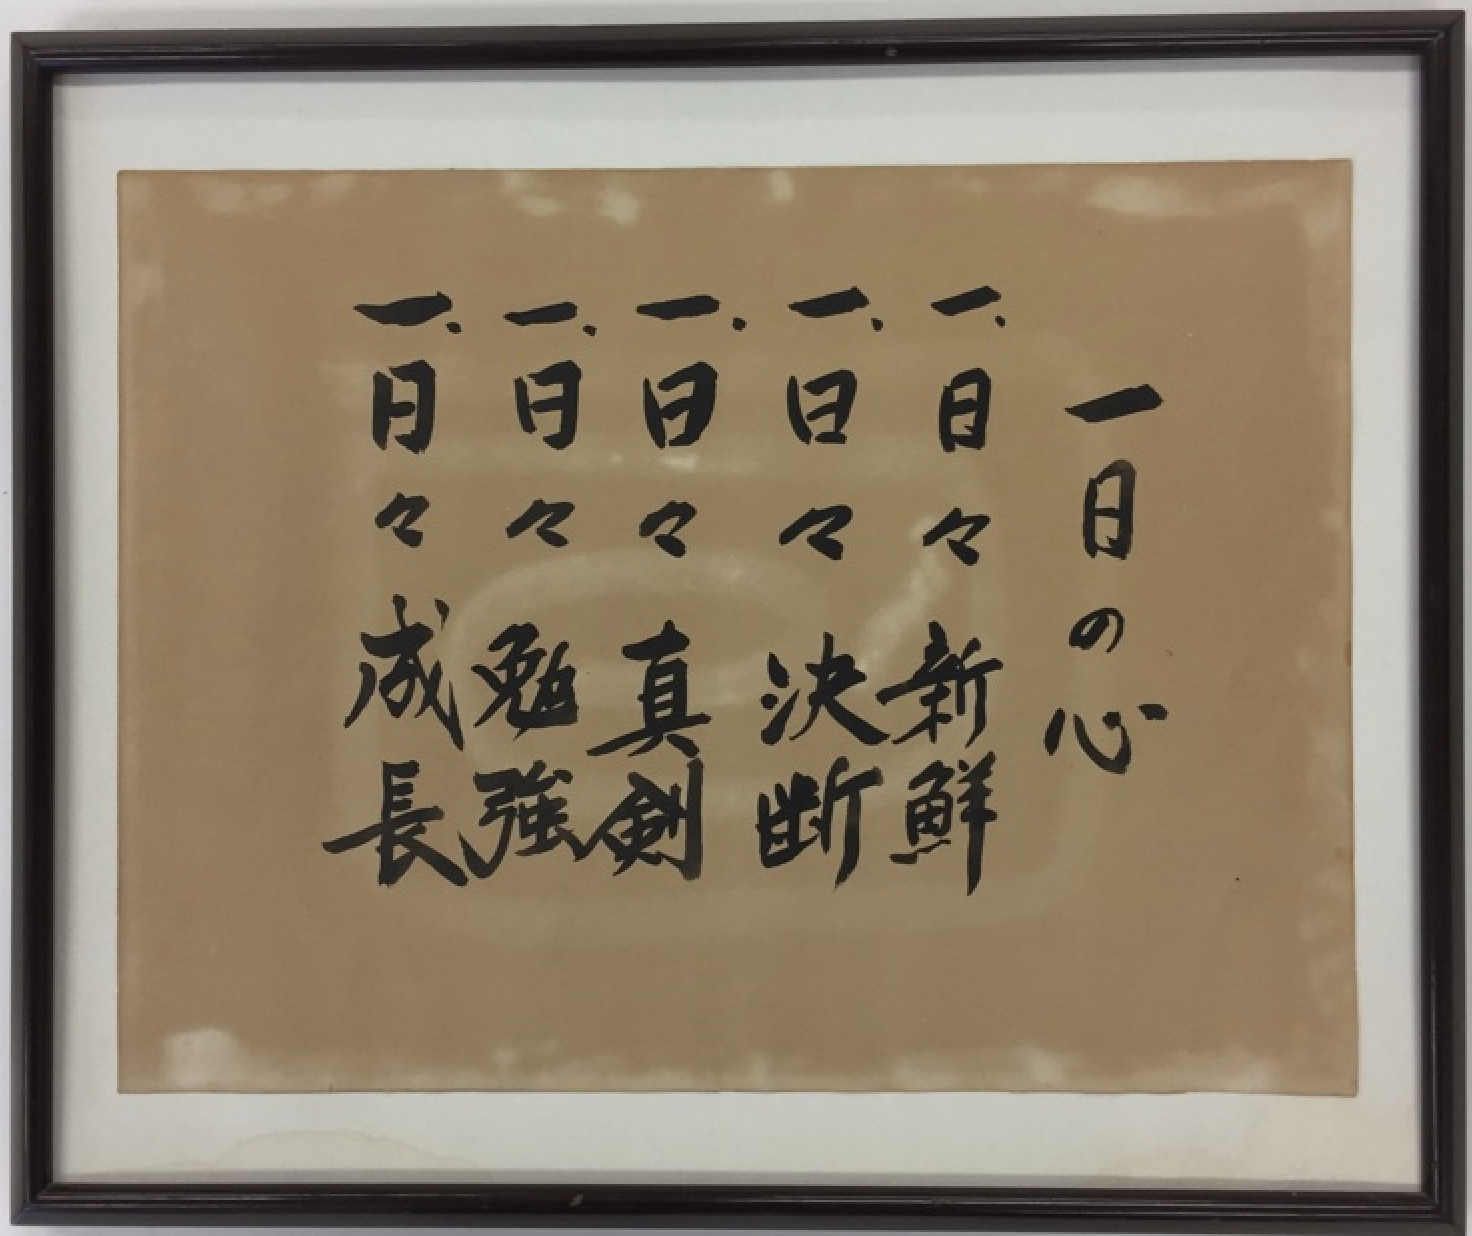 一日の心
一、日々新鮮
一、日々決断
一、日々真剣
一、日々勉強
一、日々成長